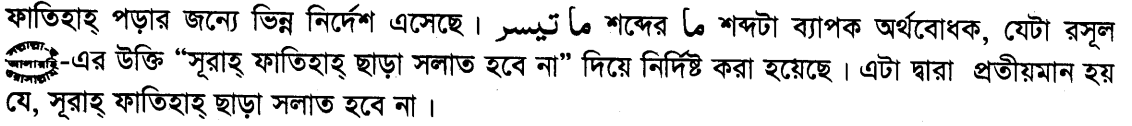 ফাতিহাহ্ পড়ার জন্যে ভিন্ন নির্দেশ এসেছে। ما تيسر শব্দের ما শব্দটা ব্যাপক অর্থবোধক, যেটা রসূল
-এর উক্তি “সূরাহ্ ফাতিহাহ্ ছাড়া সলাত হবে না” দিয়ে নির্দিষ্ট করা হয়েছে। এটা দ্বারা প্রতীয়মান হয়
যে, সূরাহ্ ফাতিহাহ্ ছাড়া সলাত হবে না।